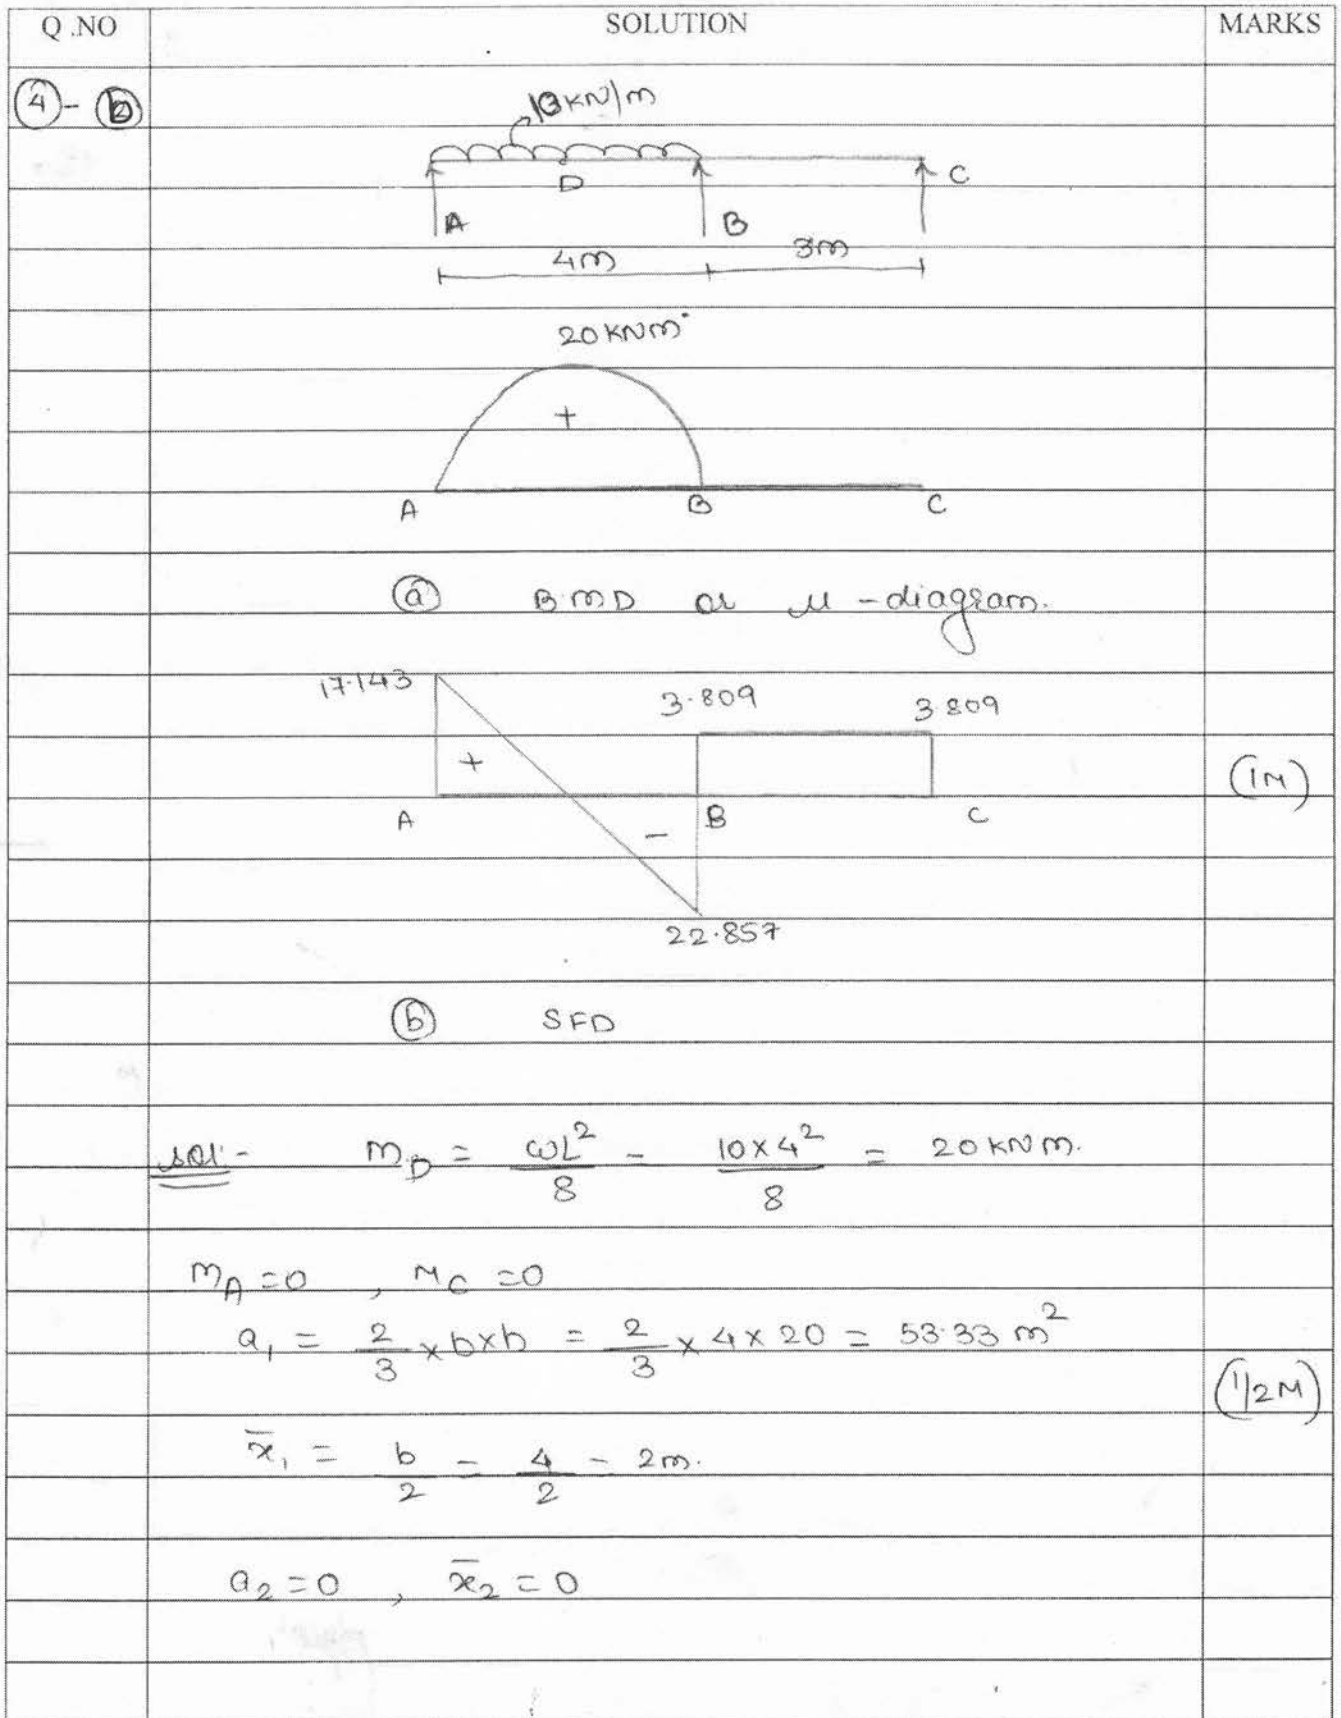 Q.NO SOLUTION MARKS
4 - b
10 KN/m
D C
A B
4m 3m
20 KNm
+
A B C
a BMD or μ - diagram.
17.143 3.809 3.809
+ (1M)
A B C
-
22.857
b SFD
sol:- M_D = ωL²/8 = 10×4²/8 = 20 KNm.
M_A = 0 , M_C = 0
a₁ = 2/3 × b×h = 2/3 × 4 × 20 = 53.33 m²
(1/2M)
x̄₁ = b/2 = 4/2 = 2m.
a₂ = 0 , x̄₂ = 0